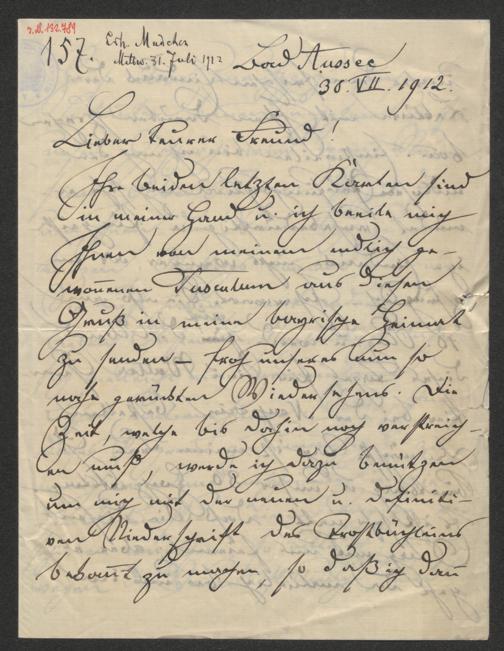 I.N. 132.789
157. Erh. München
Mittw. 31. Juli 1912
Bad Aussee
30. VII. 1912.
Lieber teurer Freund!
Ihre beiden letzten Karten sind
in meiner Hand u. ich beeile mich
Ihnen von meinem endlich ge-
wonnenen Tusculum aus diesen
Gruß in meine bayrische Heimat
zu senden – froh unseres nun so
nahe gerückten Wiedersehens. Die
Zeit, welche bis dahin noch verstreich-
en muß, werde ich dazu benützen
um mich mit der neuen u. definiti-
ven Niederschrift des Trostbüchleins
bekan̅t zu machen, so daß ich dan̅